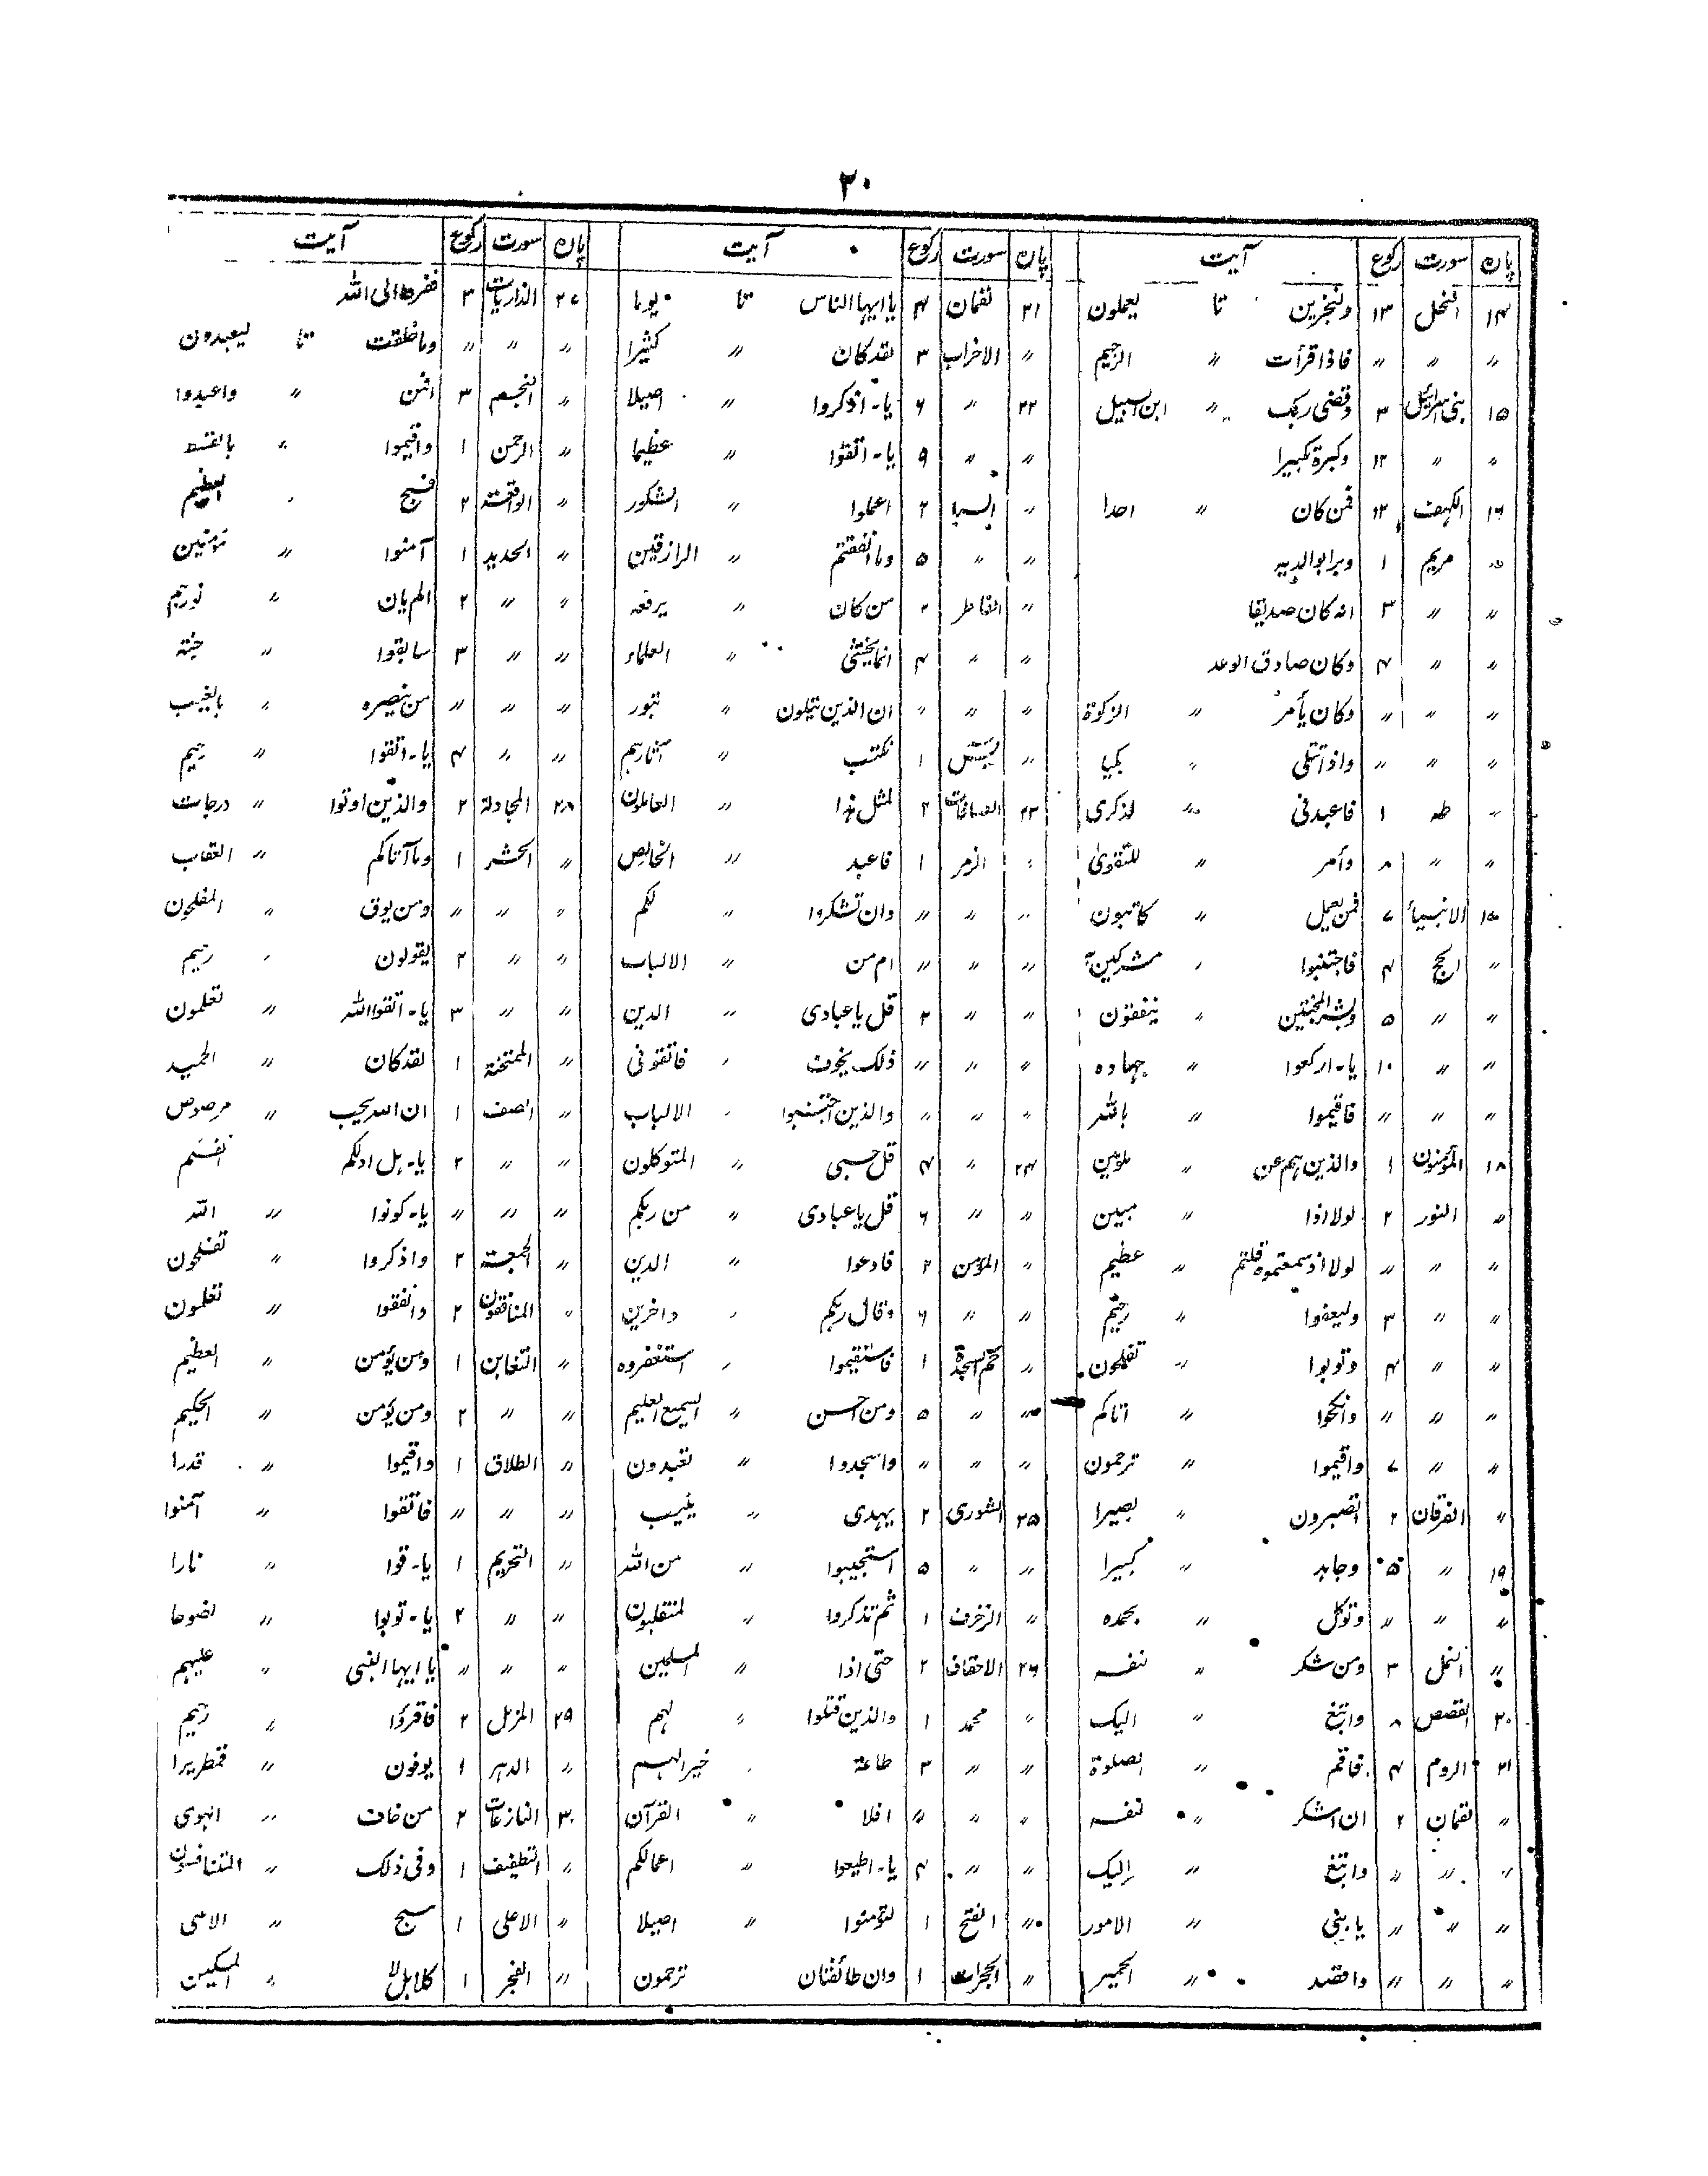 ۲۰
پارہ سورت رکوع آیت
۱۴ النحل ۱۳ ولنجزین تا یعملون
〃 〃 〃 فاذا قرأت 〃 الرجیم
۱۵ بنی اسرائیل ۳ وقضی ربک 〃 ابن السبیل
〃 〃 ۱۲ وکبرہ تکبیرا
۱۶ الکہف ۱۲ فمن کان 〃 احدا
〃 مریم ۱ وبرا بوالدیہ
〃 〃 ۳ انہ کان صدیقا
〃 〃 ۴ وکان صادق الوعد
〃 〃 〃 وکان یأمر 〃 الزکوۃ
〃 〃 〃 واذا تتلی 〃 بکیا
〃 طہ ۱ فاعبدنی 〃 لذکری
〃 〃 ۸ وأمر 〃 للتقویٰ
۱۷ الانبیاء ۷ فمن یعمل 〃 کاتبون
〃 الحج ۴ فاجتنبوا 〃 مشرکین بہ
〃 〃 ۵ وبشر المخبتین 〃 ینفقون
〃 〃 ۱۰ یا۔ ارکعوا 〃 جہادہ
〃 〃 〃 فاقیموا 〃 باللہ
۱۸ المؤمنون ۱ والذین ہم عن 〃 ملومین
〃 النور ۲ لولا اذا 〃 مبین
〃 〃 〃 لولا اذ سمعتموہ قلتم 〃 عظیم
〃 〃 ۳ ولیعفوا 〃 رحیم
〃 〃 ۴ وتوبوا 〃 تفلحون
〃 〃 〃 وانکحوا 〃 اتاکم
〃 〃 ۷ واقیموا 〃 ترحمون
〃 الفرقان ۲ اتصبرون 〃 بصیرا
۱۹ 〃 ۵ وجاہد 〃 کبیرا
〃 〃 〃 وتوکل 〃 بحمدہ
〃 النمل ۳ ومن شکر 〃 لنفسہ
۲۰ القصص ۸ وابتغ 〃 الیک
۲۱ الروم ۴ فاقم 〃 الصلوۃ
〃 لقمان ۲ ان اشکر 〃 لنفسہ
〃 〃 〃 وابتغ 〃 إلیک
〃 〃 〃 یا بنی 〃 الامور
〃 〃 〃 واقصد 〃 الحمیر
پارہ سورت رکوع آیت
۲۱ لقمان ۴ یا ایہا الناس تا یوما
〃 الاحزاب ۳ لقد کان 〃 کثیرا
۲۲ 〃 ۶ یا۔ اذکروا 〃 اصیلا
〃 〃 ۹ یا۔ اتقوا 〃 عظیما
〃 السبا ۲ اعملوا 〃 الشکور
〃 〃 ۵ وما انفقتم 〃 الرازقین
〃 الفاطر ۲ من کان 〃 یرفعہ
〃 〃 ۴ انما یخشی 〃 العلماء
〃 〃 〃 ان الذین یتلون 〃 تبور
〃 یٰسٓ ۱ نکتب 〃 آثارہم
۲۳ الصافات ۲ لمثل ہذا 〃 العاملون
〃 الزمر ۱ فاعبد 〃 الخالص
〃 〃 〃 وان تشکروا 〃 لکم
〃 〃 〃 ام من 〃 الالباب
〃 〃 ۲ قل یا عبادی 〃 الدین
〃 〃 〃 ذلک یخوف 〃 فاتقونی
〃 〃 〃 والذین اجتنبوا 〃 الالباب
۲۴ 〃 ۴ قل حسبی 〃 المتوکلون
〃 〃 ۶ قل یا عبادی 〃 من ربکم
〃 المؤمن ۲ فادعوا 〃 الدین
〃 〃 ۶ وقال ربکم 〃 داخرین
〃 حٰم السجدۃ ۱ فاستقیموا 〃 استغفروہ
〃 〃 ۵ ومن احسن 〃 السمیع العلیم
〃 〃 〃 واسجدوا 〃 تعبدون
۲۵ الشوری ۲ یہدی 〃 ینیب
〃 〃 ۵ استجیبوا 〃 من اللہ
〃 الزخرف ۱ ثم تذکروا 〃 لمنقلبون
۲۶ الاحقاف ۲ حتی اذا 〃 المسلمین
〃 محمد ۱ والذین قتلوا 〃 لہم
〃 〃 ۳ طاعۃ 〃 خیرا لہم
〃 〃 〃 افلا 〃 القرآن
〃 〃 ۴ یا۔ اطیعوا 〃 اعمالکم
〃 الفتح ۱ لتؤمنوا 〃 اصیلا
〃 الحجرات ۱ وان طائفتان ترحمون
پارہ سورت رکوع آیت
۲۷ الذاریات ۳ ففروا الی اللہ
〃 〃 〃 وما خلقت تا لیعبدون
〃 النجم ۳ افمن 〃 واعبدوا
〃 الرحمن ۱ واقیموا 〃 بالقسط
〃 الواقعۃ ۲ فسبح 〃 العظیم
〃 الحدید ۱ آمنوا 〃 مؤمنین
〃 〃 ۲ الم یان 〃 نورہم
〃 〃 ۳ سابقوا 〃 جنۃ
〃 〃 〃 من ینصرہ 〃 بالغیب
〃 〃 ۴ یا۔ اتقوا 〃 رحیم
۲۸ المجادلۃ ۲ والذین اوتوا 〃 درجات
〃 الحشر ۱ وما آتاکم 〃 العقاب
〃 〃 〃 ومن یوق 〃 المفلحون
〃 〃 ۲ یقولون 〃 رحیم
〃 〃 ۳ یا۔ اتقوا اللہ 〃 تعلمون
〃 الممتحنۃ ۱ لقد کان 〃 الحمید
〃 الصف ۱ ان اللہ یحب 〃 مرصوص
〃 〃 ۲ یا۔ ہل ادلکم انفسکم
〃 〃 〃 یا۔ کونوا 〃 اللہ
〃 الجمعۃ ۲ واذکروا 〃 تفلحون
〃 المنافقون ۲ وانفقوا 〃 تعلمون
〃 التغابن ۱ ومن یؤمن 〃 العظیم
〃 〃 ۲ ومن یؤمن 〃 الحکیم
〃 الطلاق ۱ واقیموا 〃 قدرا
〃 〃 〃 فاتقوا 〃 آمنوا
〃 التحریم ۱ یا۔ قوا 〃 نارا
〃 〃 ۲ یا۔ توبوا 〃 نصوحا
〃 〃 〃 یا ایہا النبی 〃 علیہم
۲۹ المزمل ۲ فاقرؤا 〃 رحیم
〃 الدہر ۱ یوفون 〃 قمطریرا
۳۰ النازعات ۲ من خاف 〃 الہوی
〃 التطفیف ۱ وفی ذلک 〃 المتنافسون
〃 الاعلی ۱ سبح 〃 الاعلی
〃 الفجر ۱ کلا بل لا 〃 المسکین